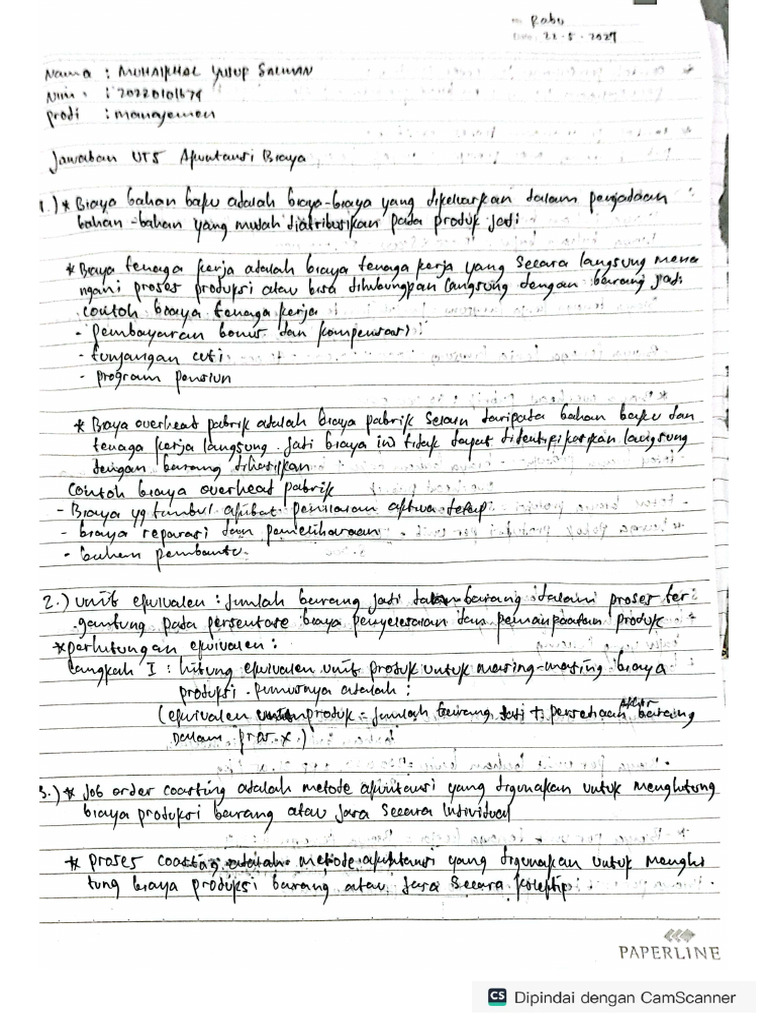 No. Rabu
Date. 22 - 5 - 2024
Nama :
Nim :
Prodi : Manajemen
Jawaban UTS Akuntansi Biaya
1.) * Biaya bahan baku adalah biaya-biaya yang dikeluarkan dalam pengadaan
bahan-bahan yang mudah diatribusikan pada produk jadi
* Biaya tenaga kerja adalah biaya tenaga kerja yang secara langsung mena
ngani proses produksi atau bisa dihubungkan langsung dengan barang jadi
contoh biaya tenaga kerja :
- pembayaran bonus dan kompensasi
- tunjangan cuti
- program pensiun
* Biaya overhead pabrik adalah biaya pabrik selain daripada bahan baku dan
tenaga kerja langsung. Jadi biaya ini tidak dapat didentifikasikan langsung
dengan barang dihasilkan
Contoh biaya overhead pabrik
- Biaya yg timbul akibat penilaian aktiva tetap
- biaya reparasi dan pemeliharaan
- bahan pembantu
2.) unit equivalen : jumlah barang jadi barang didalam proses ter
gantung pada persentase biaya penyelesaian dan pemanpaatan produk
* perhitungan equivalen :
Langkah I : hitung equivalen unit produk untuk masing-masing biaya
produksi. Rumusnya adalah :
(equivalen produk = jumlah barang jadi + persediaan akhir barang
dalam pros x )
3.) * Job order coasting adalah metode akuntansi yang digunakan untuk menghitung
biaya produksi barang atau jasa secara individual
* Proses coasting adalah metode akuntansi yang digunakan untuk menghi
tung biaya produksi barang atau jasa secara kolektip
PAPERLINE
CS Dipindai dengan CamScanner